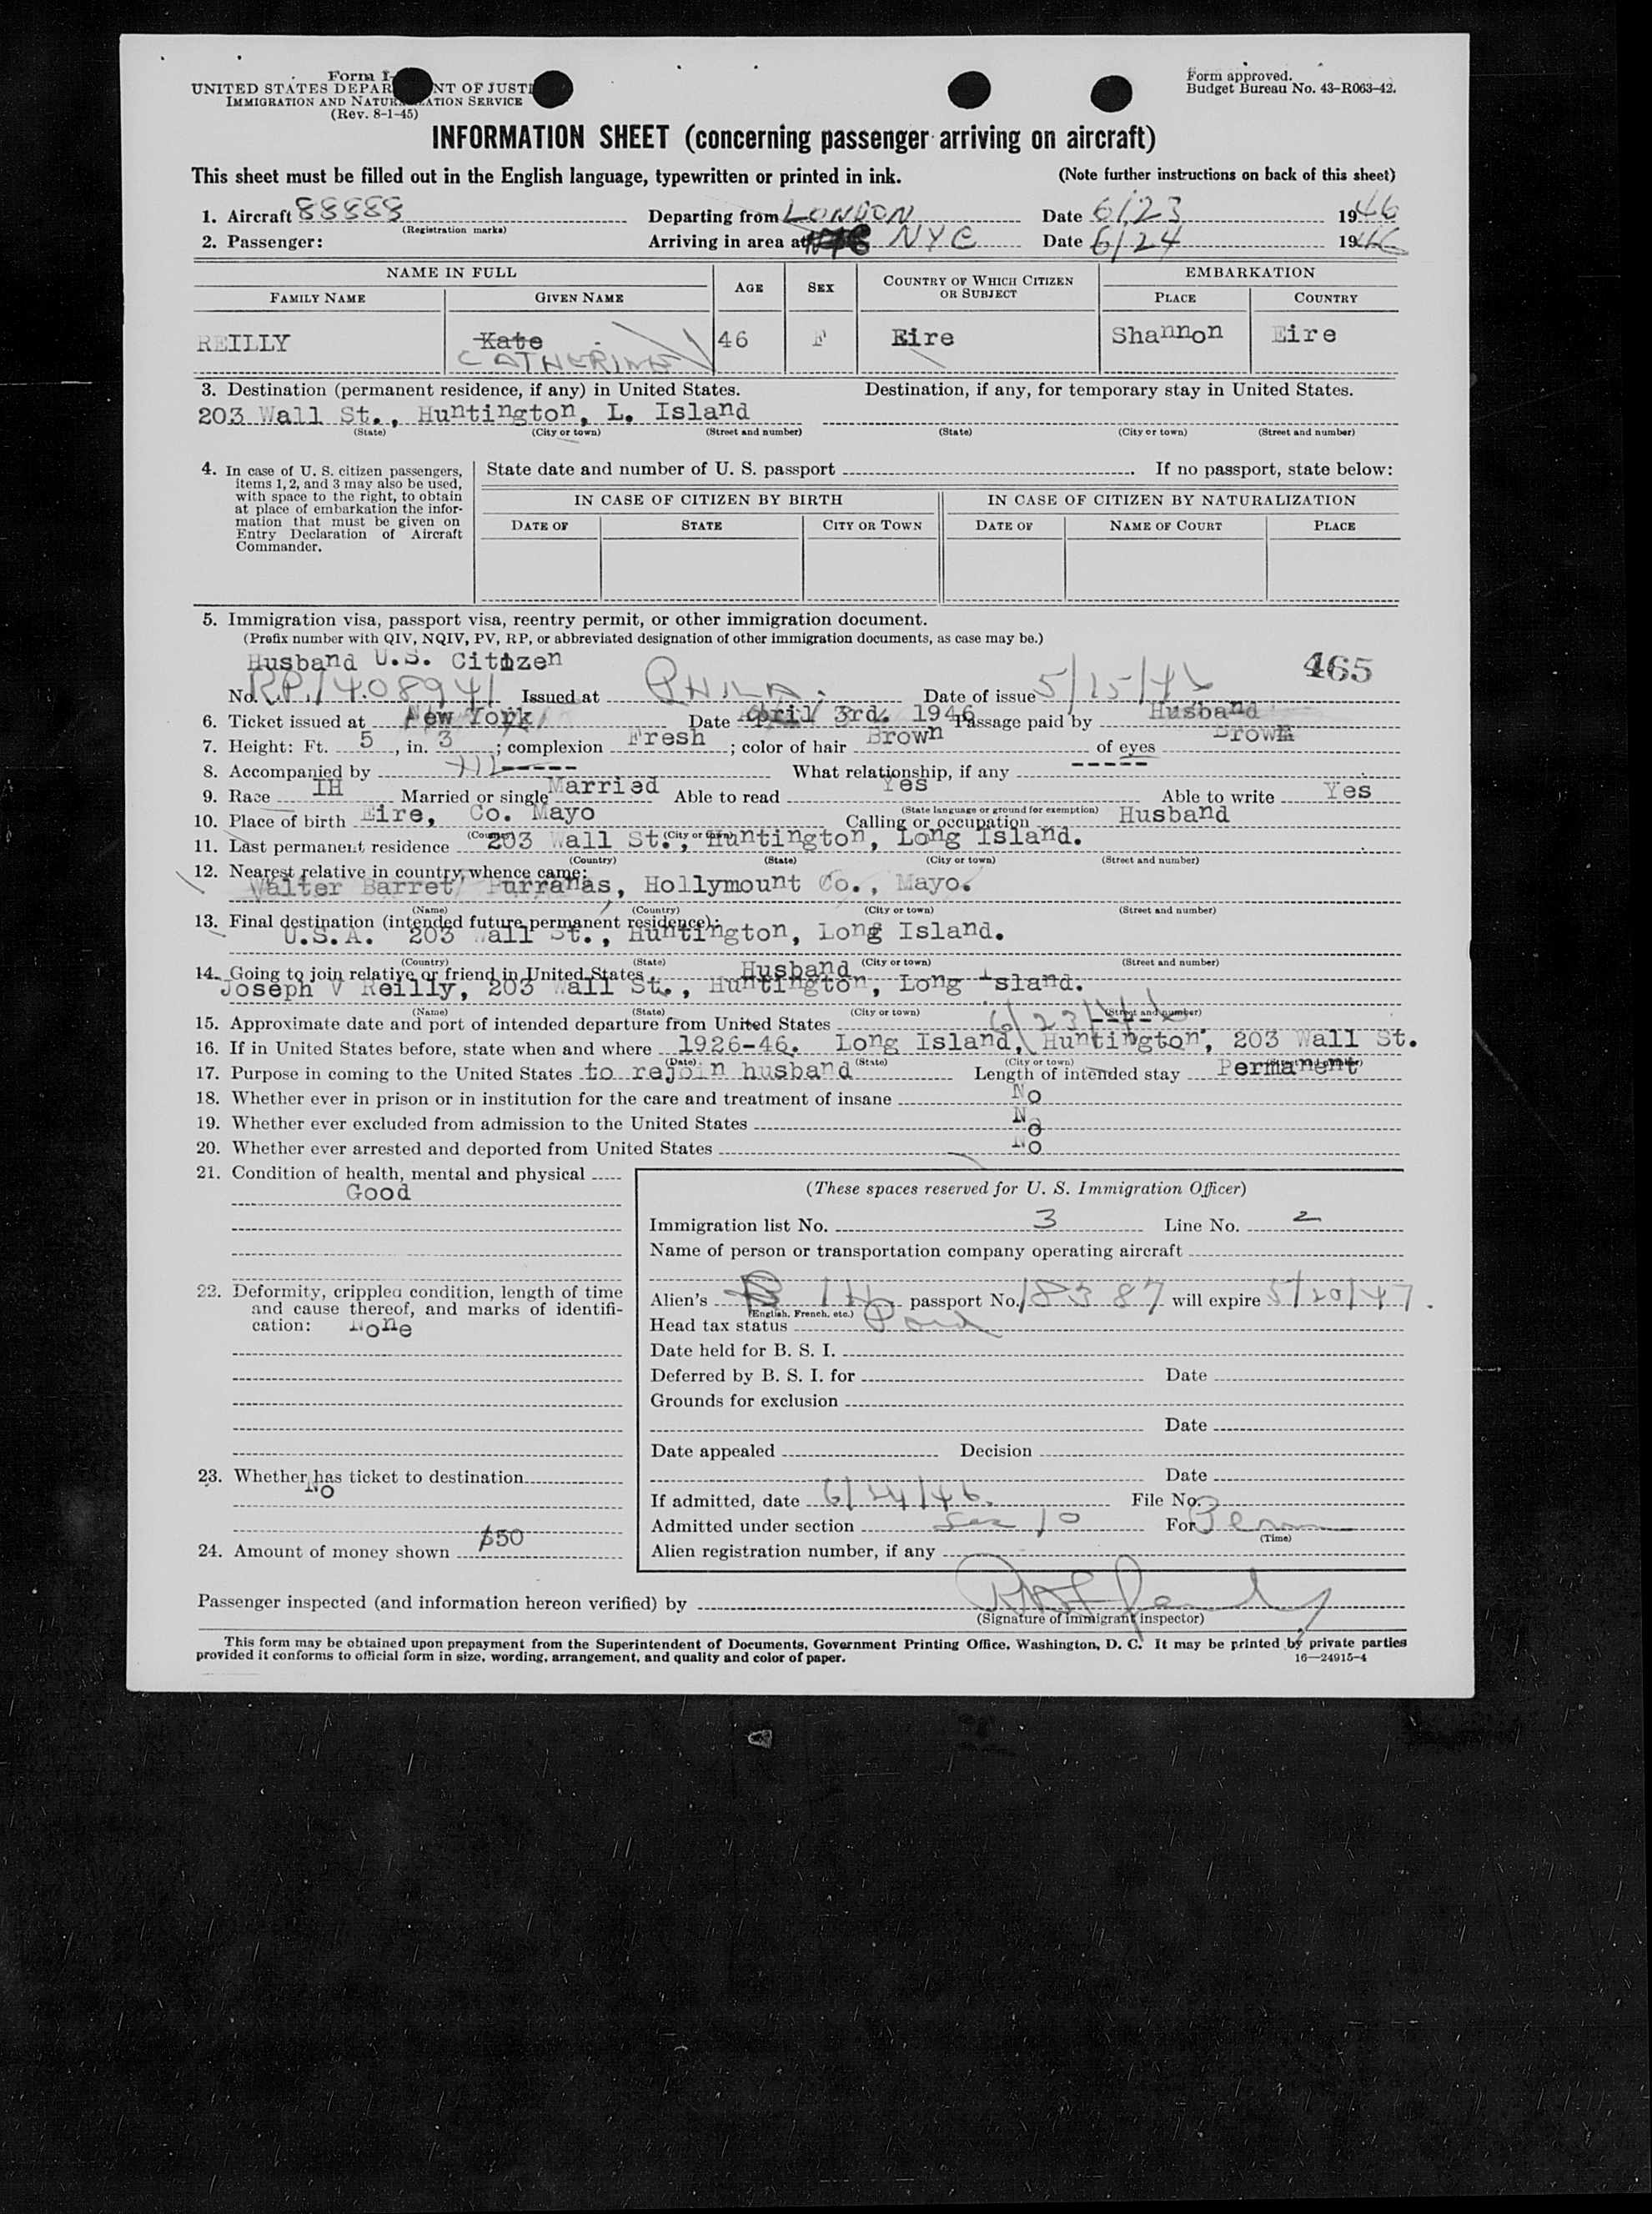 Form I-
UNITED STATES DEPAR NT OF JUSTI
IMMIGRATION AND NATUR ATION SERVICE
(Rev. 8-1-45)
Form approved.
Budget Bureau No. 43-R063-42.
INFORMATION SHEET (concerning passenger arriving on aircraft)
This sheet must be filled out in the English language, typewritten or printed in ink. (Note further instructions on back of this sheet)
1. Aircraft 88888 Departing from LONDON Date 6/23 1946
(Registration marks)
2. Passenger: Arriving in area at NYC Date 6/24 1946
NAME IN FULL AGE SEX COUNTRY OF WHICH CITIZEN OR SUBJECT EMBARKATION
FAMILY NAME GIVEN NAME PLACE COUNTRY
REILLY Kate 46 F Eire Shannon Eire
CATHERINE
3. Destination (permanent residence, if any) in United States. Destination, if any, for temporary stay in United States.
203 Wall St., Huntington, L. Island
(State) (City or town) (Street and number) (State) (City or town) (Street and number)
4. In case of U. S. citizen passengers, items 1, 2, and 3 may also be used, with space to the right, to obtain at place of embarkation the information that must be given on Entry Declaration of Aircraft Commander.
State date and number of U. S. passport . If no passport, state below:
IN CASE OF CITIZEN BY BIRTH IN CASE OF CITIZEN BY NATURALIZATION
DATE OF STATE CITY OR TOWN DATE OF NAME OF COURT PLACE
5. Immigration visa, passport visa, reentry permit, or other immigration document.
(Prefix number with QIV, NQIV, PV, RP, or abbreviated designation of other immigration documents, as case may be.)
Husband U.S. Citizen 465
No. RP1408941 Issued at PHILA. Date of issue 5/15/46
6. Ticket issued at New York Date April 3rd. 1946 Passage paid by Husband
7. Height: Ft. 5, in. 3; complexion Fresh; color of hair Brown of eyes Brown
8. Accompanied by ----- What relationship, if any -----
9. Race IH Married or single Married Able to read Yes Able to write Yes
(State language or ground for exemption)
10. Place of birth Eire, Co. Mayo Calling or occupation Husband
(Country) (City or town)
11. Last permanent residence 203 Wall St., Huntington, Long Island.
(Country) (State) (City or town) (Street and number)
12. Nearest relative in country whence came:
Walter Barret Purranas, Hollymount Co., Mayo.
(Name) (Country) (City or town) (Street and number)
13. Final destination (intended future permanent residence):
U.S.A. 203 Wall St., Huntington, Long Island.
(Country) (State) (City or town) (Street and number)
14. Going to join relative or friend in United States Husband
Joseph V Reilly, 203 Wall St., Huntington, Long Island.
(Name) (State) (City or town) (Street and number)
15. Approximate date and port of intended departure from United States 6/23/46
16. If in United States before, state when and where 1926-46. Long Island, Huntington, 203 Wall St.
(Date) (State) (City or town) (Street and number)
17. Purpose in coming to the United States to rejoin husband Length of intended stay Permanent
18. Whether ever in prison or in institution for the care and treatment of insane No
19. Whether ever excluded from admission to the United States No
20. Whether ever arrested and deported from United States No
21. Condition of health, mental and physical
Good
22. Deformity, crippled condition, length of time and cause thereof, and marks of identification: None
23. Whether has ticket to destination
No
24. Amount of money shown $50
(These spaces reserved for U. S. Immigration Officer)
Immigration list No. 3 Line No. 2
Name of person or transportation company operating aircraft
Alien's IH passport No. 18387 will expire 5/20/47.
(English, French, etc.)
Head tax status Paid
Date held for B. S. I.
Deferred by B. S. I. for Date
Grounds for exclusion
Date
Date appealed Decision
Date
If admitted, date 6/24/46. File No.
Admitted under section Sec 10 For Perm
(Time)
Alien registration number, if any
Passenger inspected (and information hereon verified) by
(Signature of immigrant inspector)
This form may be obtained upon prepayment from the Superintendent of Documents, Government Printing Office, Washington, D. C. It may be printed by private parties
provided it conforms to official form in size, wording, arrangement, and quality and color of paper. 16—24915-4